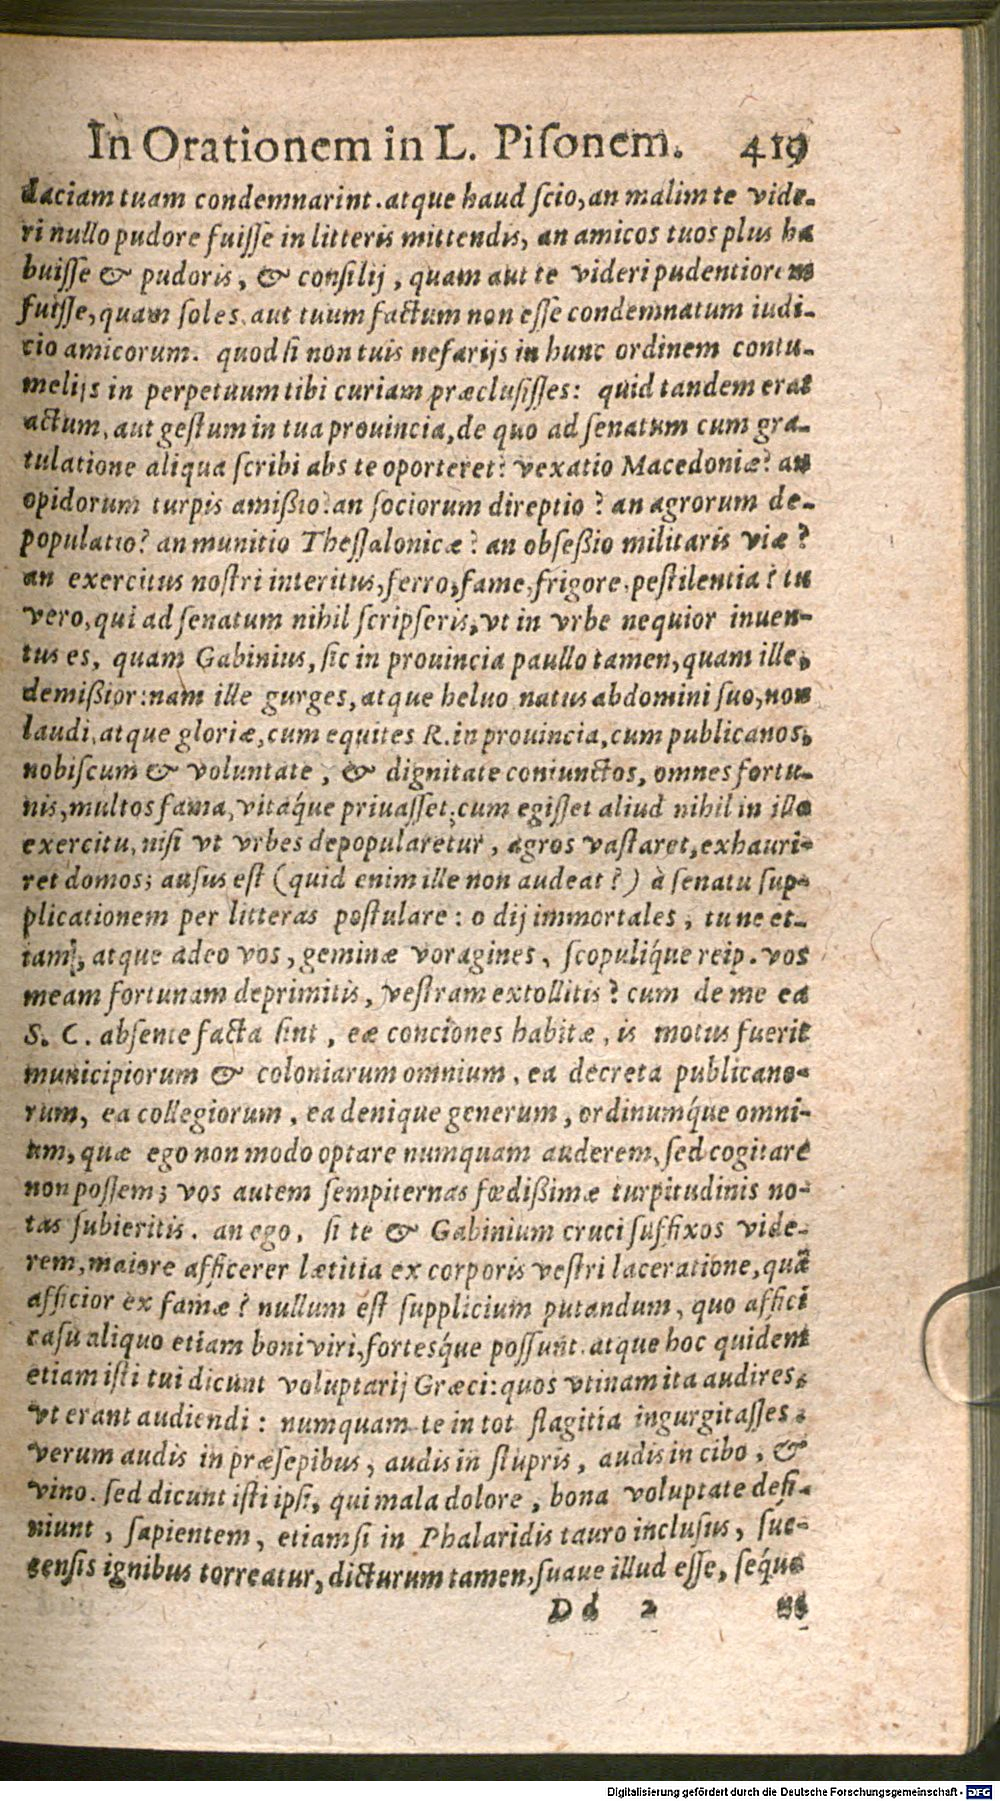 In Orationem in L. Piſonem. 419
daciam tuam condemnarint. atque haud ſcio, an malim te vide-
ri nullo pudore fuiſſe in litteris mittendis, an amicos tuos plus ha
buiſſe & pudoris, & conſilij, quam aut te videri pudentiorem
fuiſſe, quam ſoles. aut tuum factum non eſſe condemnatum iudi-
cio amicorum. quod ſi non tuis nefarijs in hunc ordinem contu-
melijs in perpetuum tibi curiam præcluſiſſes: quid tandem erat
actum, aut geſtum in tua prouincia, de quo ad ſenatum cum gra-
tulatione aliqua ſcribi abs te oporteret? vexatio Macedoniæ? an
opidorum turpis amißio? an ſociorum direptio? an agrorum de-
populatio? an munitio Theſſalonicæ? an obſeßio militaris viæ?
an exercitus noſtri interitus, ferro, fame, frigore, peſtilentia? tu
vero, qui ad ſenatum nihil ſcripſeris, vt in vrbe nequior inuen-
tus es, quam Gabinius, ſic in prouincia paullo tamen, quam ille,
demißior: nam ille gurges, atque heluo natus abdomini ſuo, non
laudi, atque gloriæ, cum equites R. in prouincia, cum publicanos,
nobiſcum & voluntate, & dignitate coniunctos, omnes fortu-
nis, multos fama, vitáque priuaſſet; cum egiſſet aliud nihil in illo
exercitu, niſi vt vrbes depopularetur, agros vaſtaret, exhauri-
ret domos; auſus eſt (quid enim ille non audeat?) à ſenatu ſup-
plicationem per litteras poſtulare: o dij immortales, tu ne et-
iam, atque adeo vos, geminæ voragines, ſcopulíque reip. vos
meam fortunam deprimitis, veſtram extollitis? cum de me ea
S. C. abſente facta ſint, eæ conciones habitæ, is motus fuerit
municipiorum & coloniarum omnium, ea decreta publicano-
rum, ea collegiorum, ea denique generum, ordinumq́ue omni-
um, quæ ego non modo optare numquam auderem, ſed cogitare
non poſſem; vos autem ſempiternas fœdißimæ turpitudinis no-
tas ſubieritis. an ego, ſi te & Gabinium cruci ſuffixos vide-
rem, maiore afficerer lætitia ex corporis veſtri laceratione, quã
afficior ex famæ? nullum eſt ſupplicium putandum, quo affici
caſu aliquo etiam boni viri, forteśque poſſunt. atque hoc quidem
etiam iſti tui dicunt voluptarij Græci: quos vtinam ita audires,
vt erant audiendi: numquam te in tot flagitia ingurgitaſſes.
verum audis in præſepibus, audis in ſtupris, audis in cibo, &
vino. ſed dicunt iſti ipſi, qui mala dolore, bona voluptate defi-
niunt, ſapientem, etiamſi in Phalaridis tauro incluſus, ſuc-
cenſis ignibus torreatur, dicturum tamen, ſuaue illud eſſe, ſéque
Dd 2
Digitalisierung gefördert durch die Deutsche Forschungsgemeinschaft - DFG